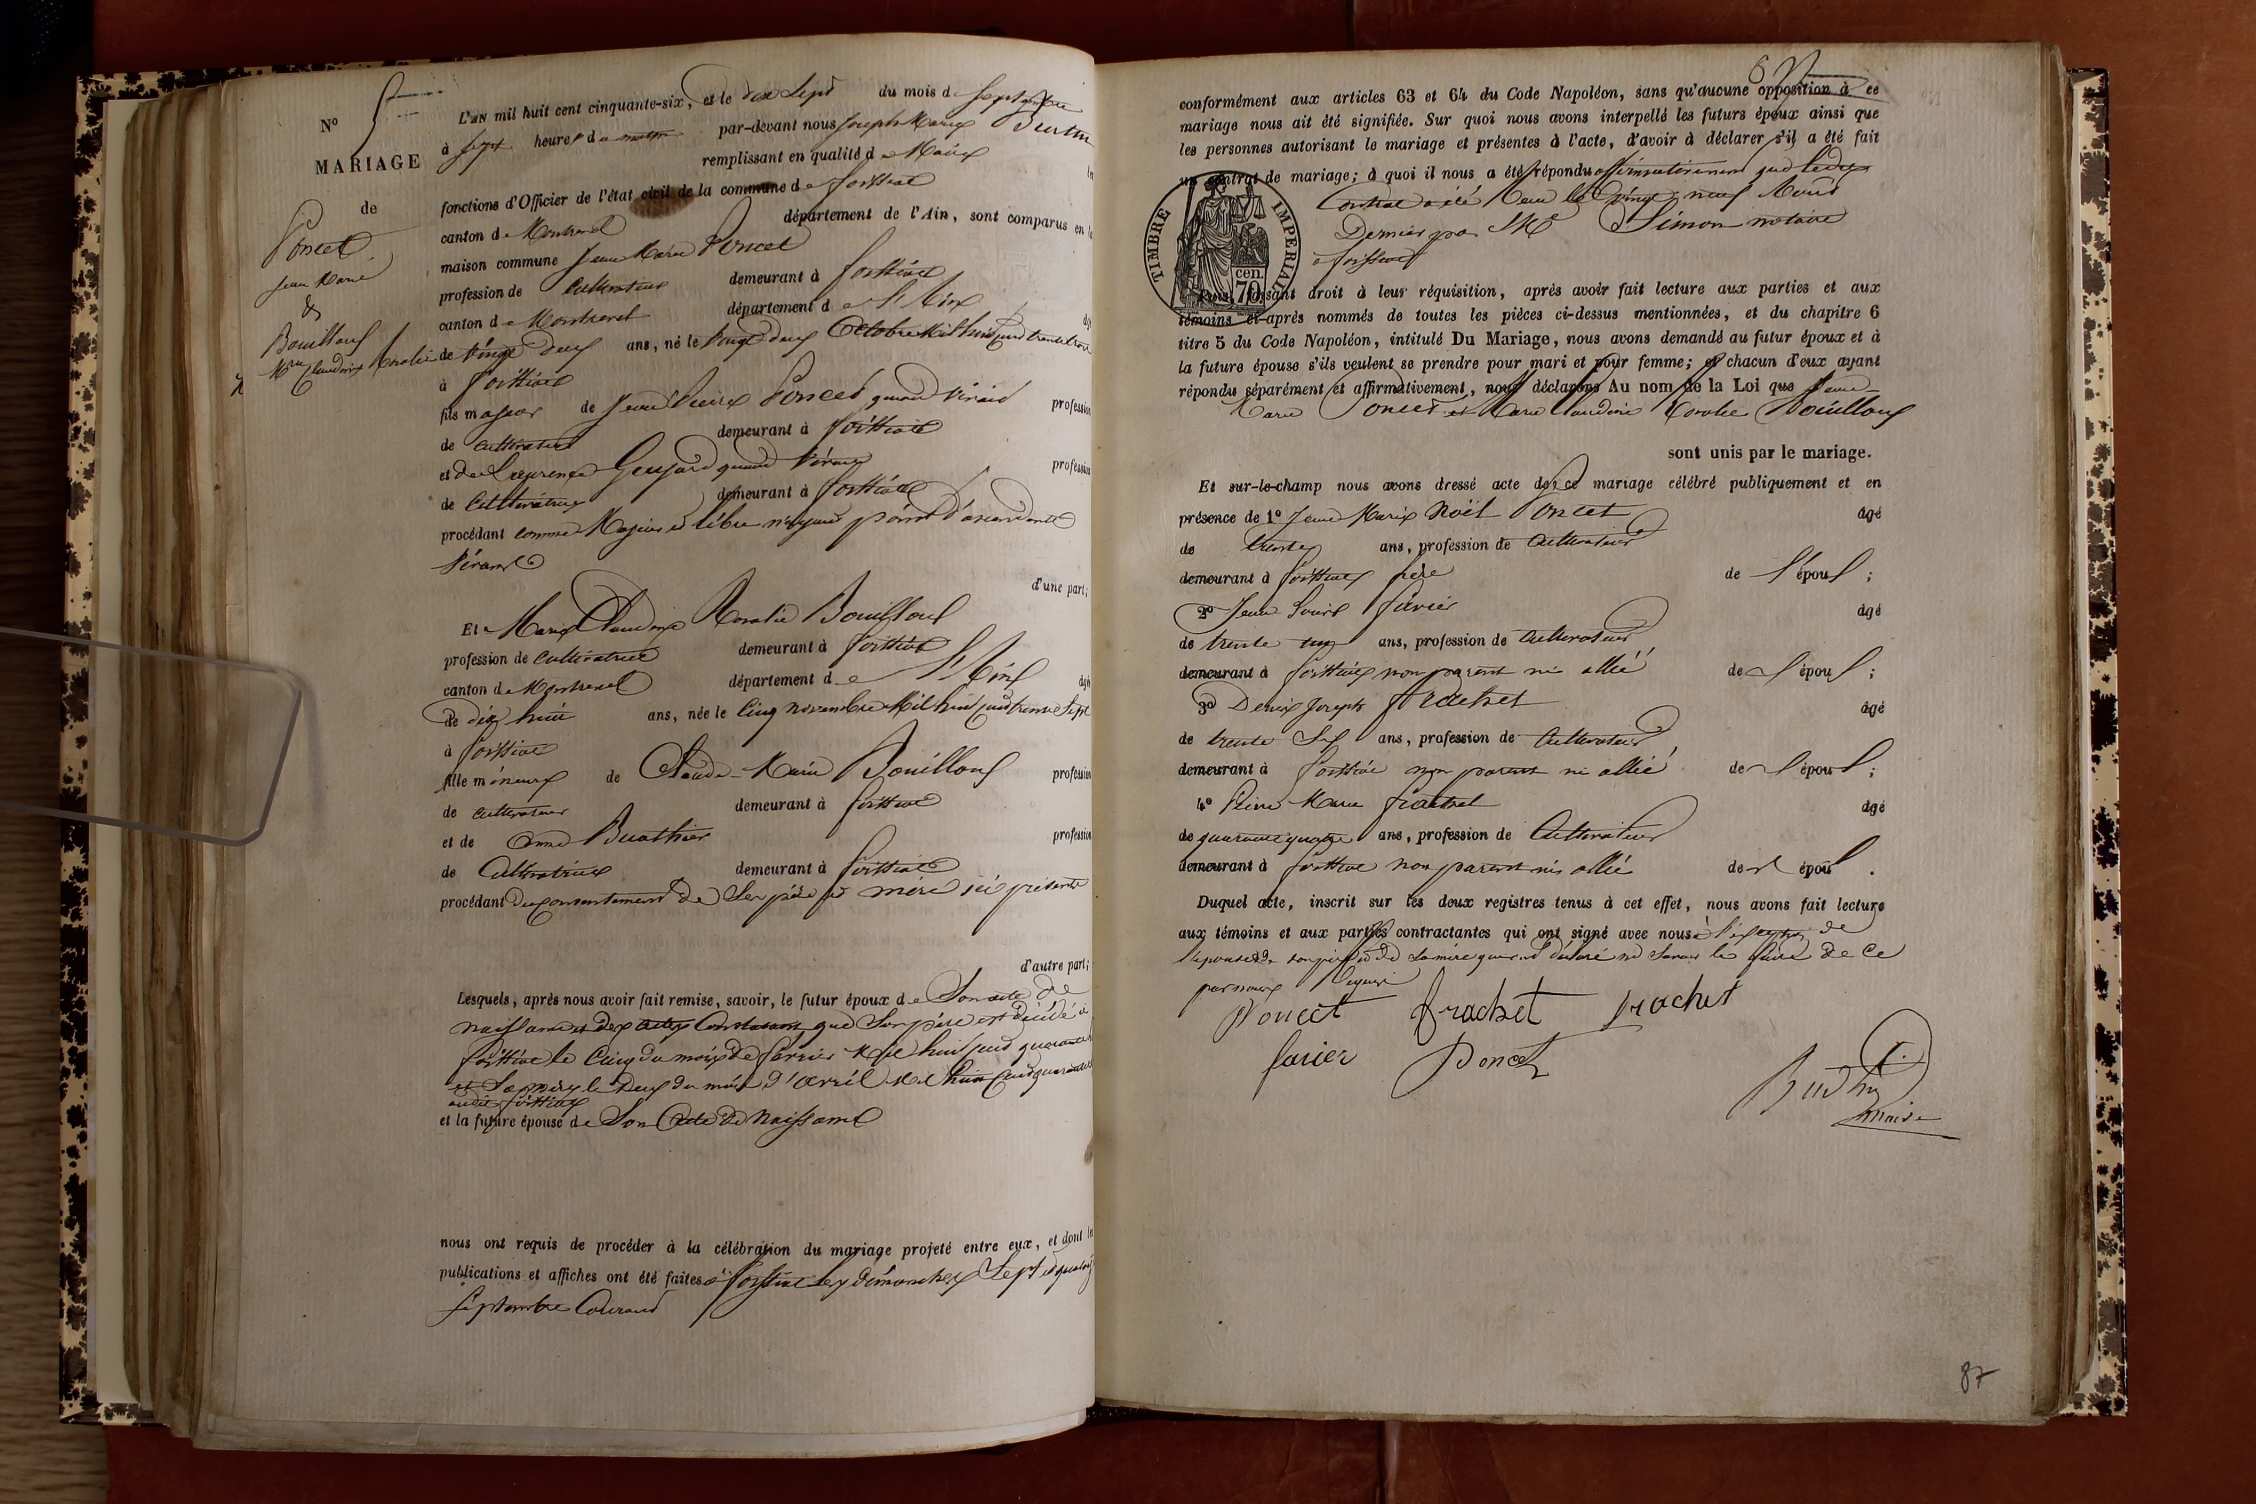 N° 5
MARIAGE
de
Poncet
Jean Marie
&
Bouilloux
Mie Claudine Rosalie
L'an mil huit cent cinquante-six, et le dix sept du mois de septembre
à sept heures du matin par-devant nous Joseph Marie
remplissant en qualité de Maire
fonctions d'Officier de l'état civil de la commune de foissiat
canton de Montrevel département de l'Ain, sont comparus en la
maison commune Jean Marie Poncet
profession de Cultivateur demeurant à foissiat
canton de Montrevel département de l'Ain
de vingt deux ans, né le vingt deux Octobre mil huit cent trente trois
à foissiat
fils majeur de Jean Pierre Poncet quand vivait profession
de cultivateur demeurant à foissiat
et de Laurence Goujard quand vivait profession
de Cultivatrice demeurant à foissiat
procédant comme Majeur et libre n'ayant point d'ascendants
vivant
d'une part;
Et Marie Claudine Rosalie Bouilloux
profession de cultivatrice demeurant à foissiat
canton de Montrevel département de l'Ain âgée
de dix huit ans, née le cinq novembre mil huit cent trente sept
à foissiat
fille mineure de Claude Marie Bouilloux profession
de cultivateur demeurant à foissiat
et de Anne Buathier profession
de Cultivatrice demeurant à foissiat
procédant du consentement de Ses père et mère ici présents
d'autre part;
Lesquels, après nous avoir fait remise, savoir, le futur époux de Son acte de
naissance et des actes Constatant que Son père est décédé à
foissiat le Cinq du mois de février mil huit cent quarante
et Sa mère le deux du mois d'avril mil huit cent quarante
audit foissiat
et la future épouse de Son Acte de Naissance
nous ont requis de procéder à la célébration du mariage projeté entre eux, et dont les
publications et affiches ont été faites à foissiat les dimanches Sept et quatorze
septembre Courant
conformément aux articles 63 et 64 du Code Napoléon, sans qu'aucune opposition à ce
mariage nous ait été signifiée. Sur quoi nous avons interpellé les futurs époux ainsi que
les personnes autorisant le mariage et présentes à l'acte, d'avoir à déclarer s'il a été fait
un contrat de mariage; à quoi il nous a été répondu affirmativement que ledit
Contrat a été Reçu le vingt neuf Aout
Dernier par Me Simon notaire
à foissiat
TIMBRE IMPERIAL
70 cen.
Puis, faisant droit à leur réquisition, après avoir fait lecture aux parties et aux
témoins ci-après nommés de toutes les pièces ci-dessus mentionnées, et du chapitre 6
titre 5 du Code Napoléon, intitulé Du Mariage, nous avons demandé au futur époux et à
la future épouse s'ils veulent se prendre pour mari et pour femme; et chacun d'eux ayant
répondu séparément et affirmativement, nous déclarons Au nom de la Loi que Jean
Marie Poncet et Marie Claudine Rosalie Bouilloux
sont unis par le mariage.
Et sur-le-champ nous avons dressé acte de ce mariage célébré publiquement et en
présence de 1° Jean Marie Noël Poncet âgé
de trente ans, profession de Cultivateur
demeurant à foissiat frère de l'époux;
2° Jean Louis favier âgé
de trente six ans, profession de Cultivateur
demeurant à foissiat non parent ni allié de l'époux;
3° Denis Joseph frachet âgé
de trente Six ans, profession de Cultivateur
demeurant à foissiat non parent ni allié de l'époux;
4° Pierre Marie frachet âgé
de quarante quatre ans, profession de Cultivateur
demeurant à foissiat non parent ni allié de l'époux.
Duquel acte, inscrit sur les deux registres tenus à cet effet, nous avons fait lecture
aux témoins et aux parties contractantes qui ont signé avec nous à l'exception de
l'épouse de son père et de Sa mère qui ont déclaré ne Savoir le faire de ce
par nous Requis
Poncet frachet frachet
favier Poncet
maire
87